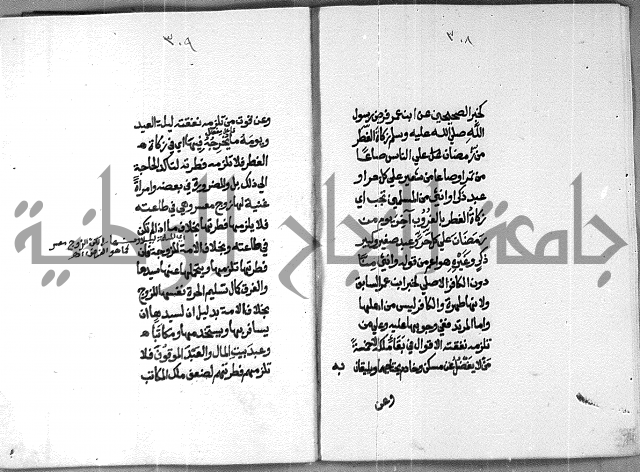 ٣٠٨
كخبر الصحيحين عن ابن عمر فرض رسول
الله صلى الله عليه وسلم زكاة الفطر
من رمضان على الناس صاعا
من تمر او صاعا من شعير على كل حر او
عبد ذكر او انثى من المسلمين تجب اي
زكاة الفطر بالغروب آخر يوم من
رمضان على كل حر وعبد صغير وكبير
ذكر وغيره هو اعم من قوله وانثى
دون الكافر الاصلي لخبر ابن عمر السابق
ولانها طهرة والكافر ليس من اهلها
واما المرتد ففي وجوبها عليه وعلى من
تلزمه نفقته الاقوال في بقاء ملكه
من لا يفضل عن مسكن وخادم يحتاجهما ويليقان به
وعن
٣٠٩
وعن قوت من تلزمه نفقته ليلة العيد
ويومه ما يخرجه فيها اي في زكاة
الفطر فلا تلزمه فطرته لتاكد الحاجة
الى ذلك بل والضرورة في بعضه وامراة
غنية لها زوج معسر وهي في طاعته
فلا يلزمها فطرتها بخلاف ما اذا لم تكن
في طاعته وبخلاف الامة المزوجة فان
فطرتها تلزمها ويتحملها عنها سيدها
والفرق كمال تسليم الحرة نفسها للزوج
بخلاف الامة بدليل ان لسيدها ان
يسافر بها ويستخدمها ومكاتبا
وعبد بيت المال والعبد الموقوف فلا
تلزمهم فطرتهم لضعف ملك المكاتب
جامعة النجاح الوطنية